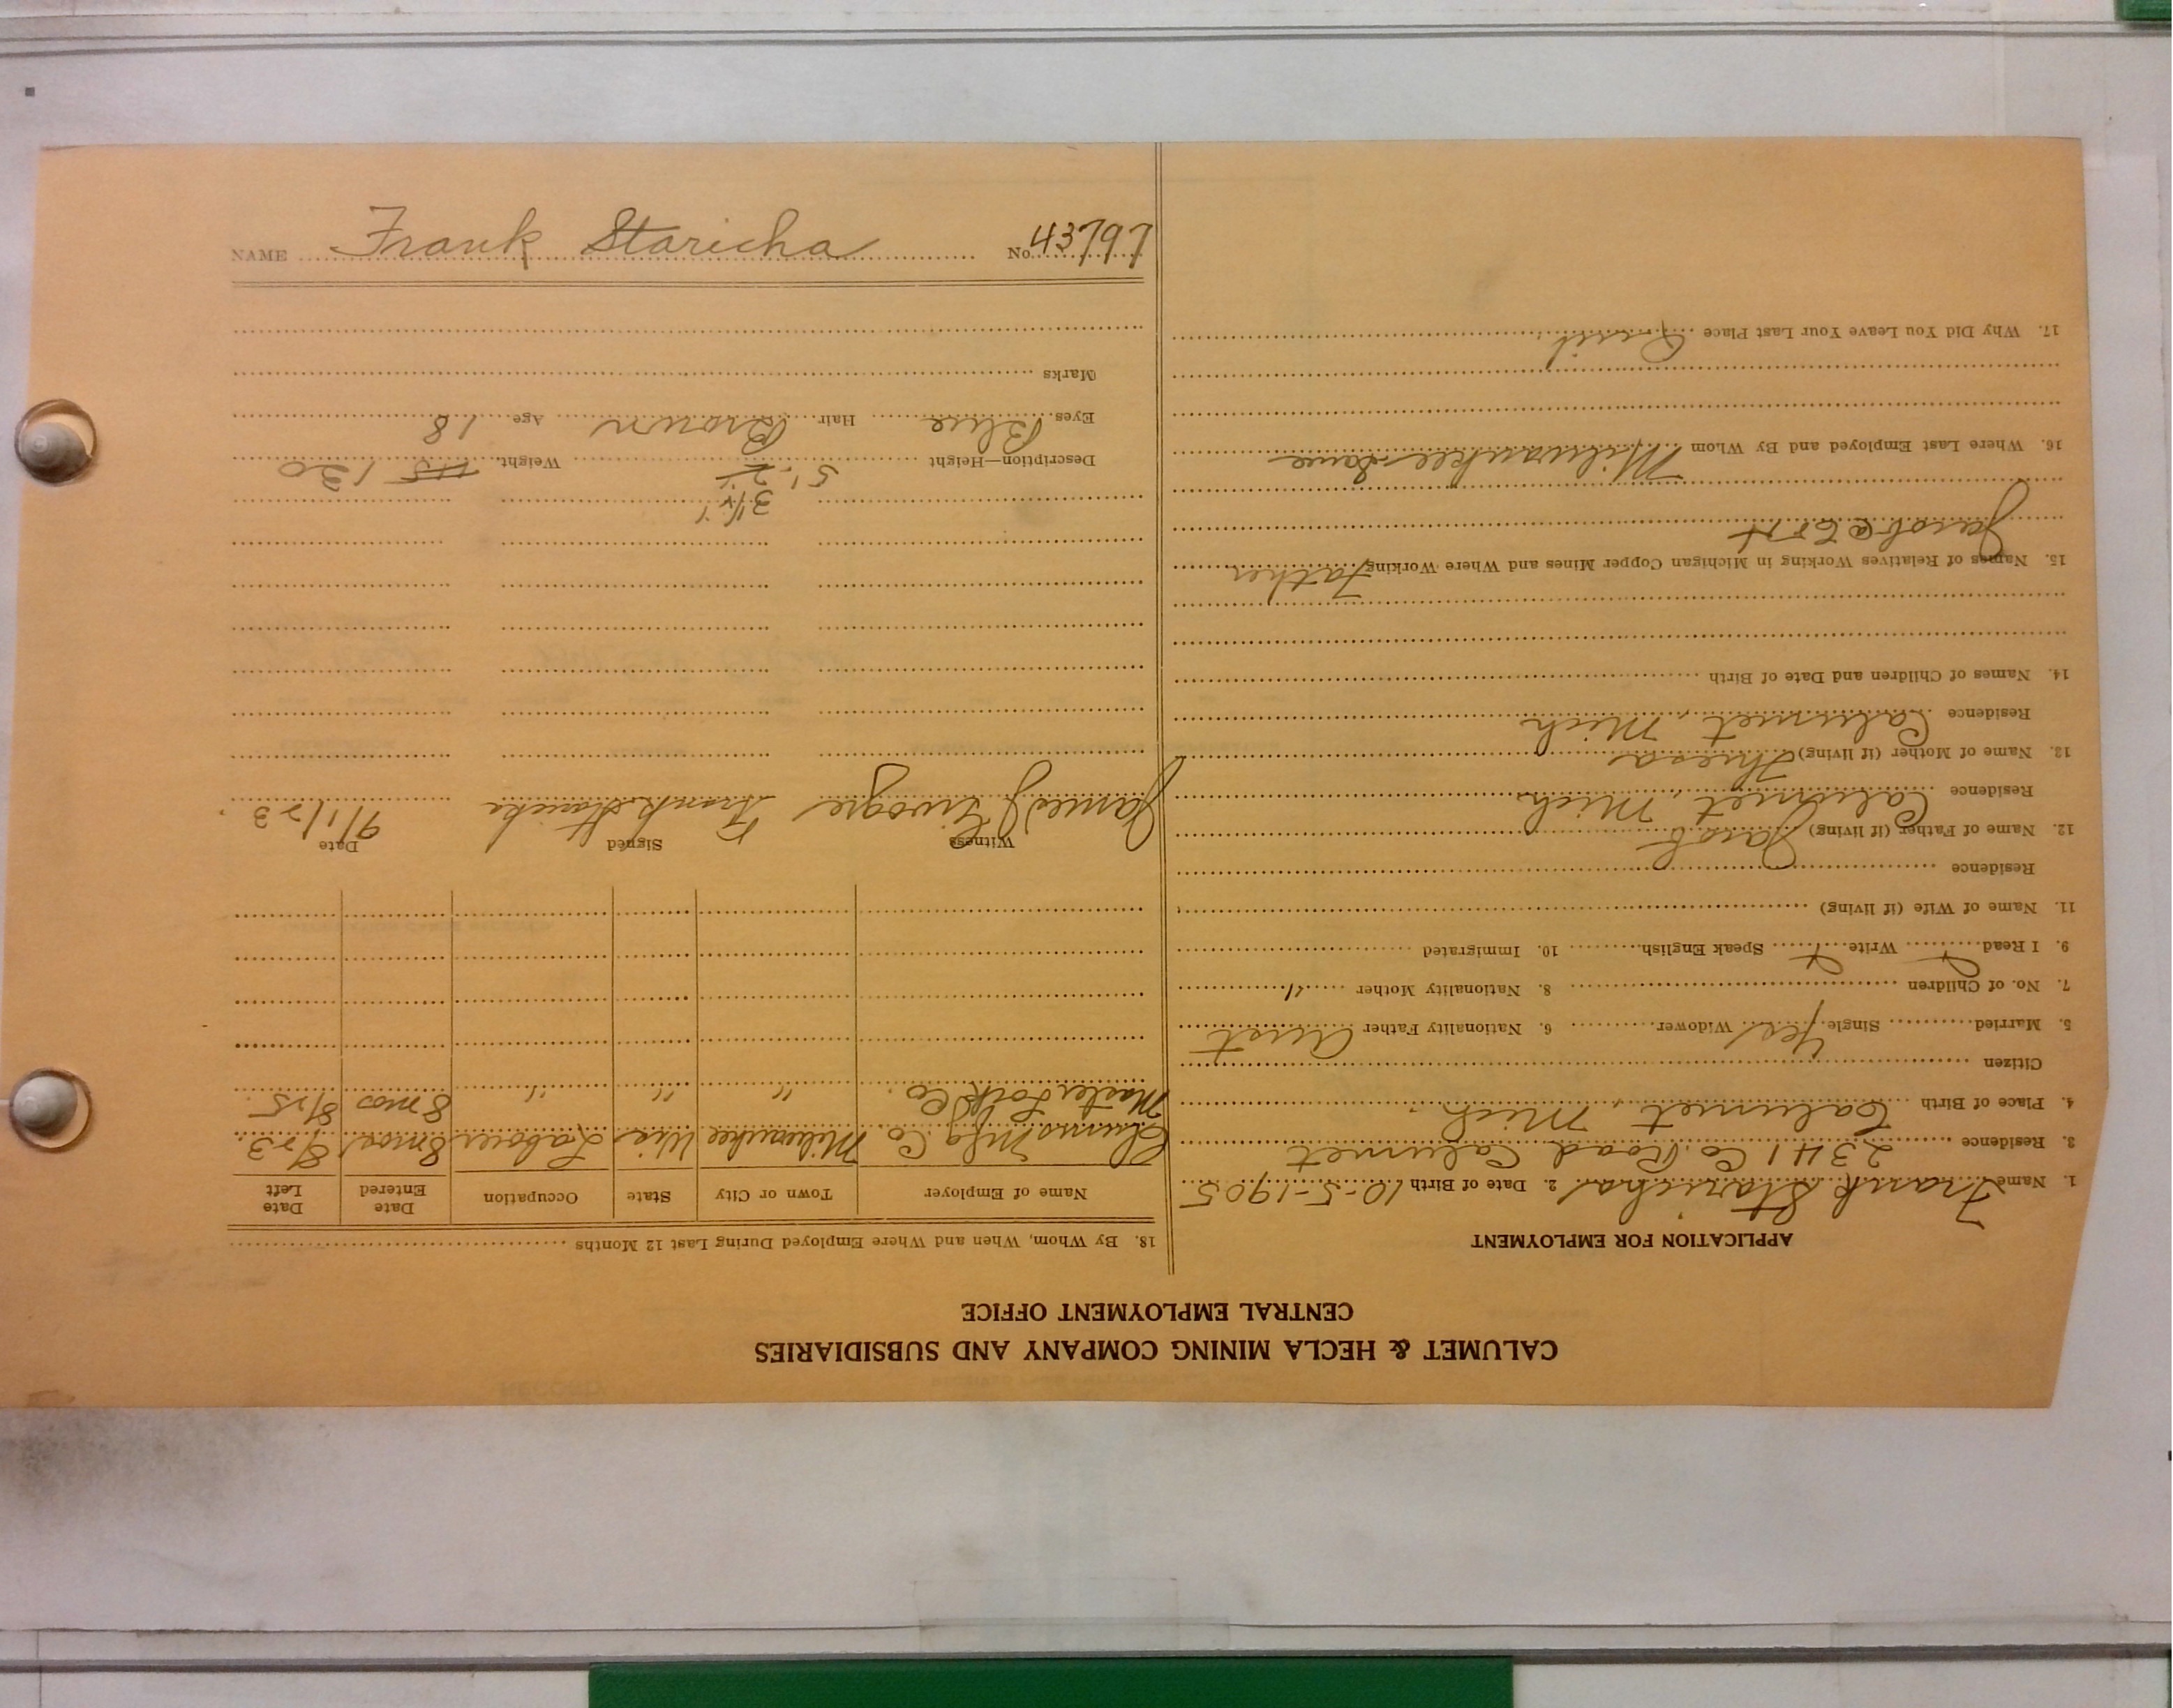 CALUMET & HECLA MINING COMPANY AND SUBSIDIARIES
CENTRAL EMPLOYMENT OFFICE
APPLICATION FOR EMPLOYMENT
1. Name Frank Staricha 2. Date of Birth 10-5-1905
3. Residence 2341 Co. Road Calumet
4. Place of Birth Calumet, Mich.
Citizen
5. Married Single Yes Widower 6. Nationality Father Aust
7. No. of Children 8. Nationality Mother "
9. I Read Write Speak English 10. Immigrated
11. Name of Wife (if living)
Residence
12. Name of Father (if living) Jacob
Residence Calumet, Mich.
13. Name of Mother (if living) Theresa
Residence Calumet, Mich
14. Names of Children and Date of Birth
15. Names of Relatives Working in Michigan Copper Mines and Where Working Father
Jacob @
16. Where Last Employed and By Whom Milwaukee
17. Why Did You Leave Your Last Place Quit.
18. By Whom, When and Where Employed During Last 12 Months
Name of Employer Town or City State Occupation Date Entered Date Left
Mfg. Co Milwaukee Wis Laborer 8 mos 8/23
Master Lock Co. " " " 8 mos 8/25
Witness Signed Date
James J Frank Staricha 9/1/23
3 1/2"
Description—Height 5' 2" Weight 115 130
Eyes Blue Hair Brown Age 18
Marks
NAME Frank Staricha No. 43797